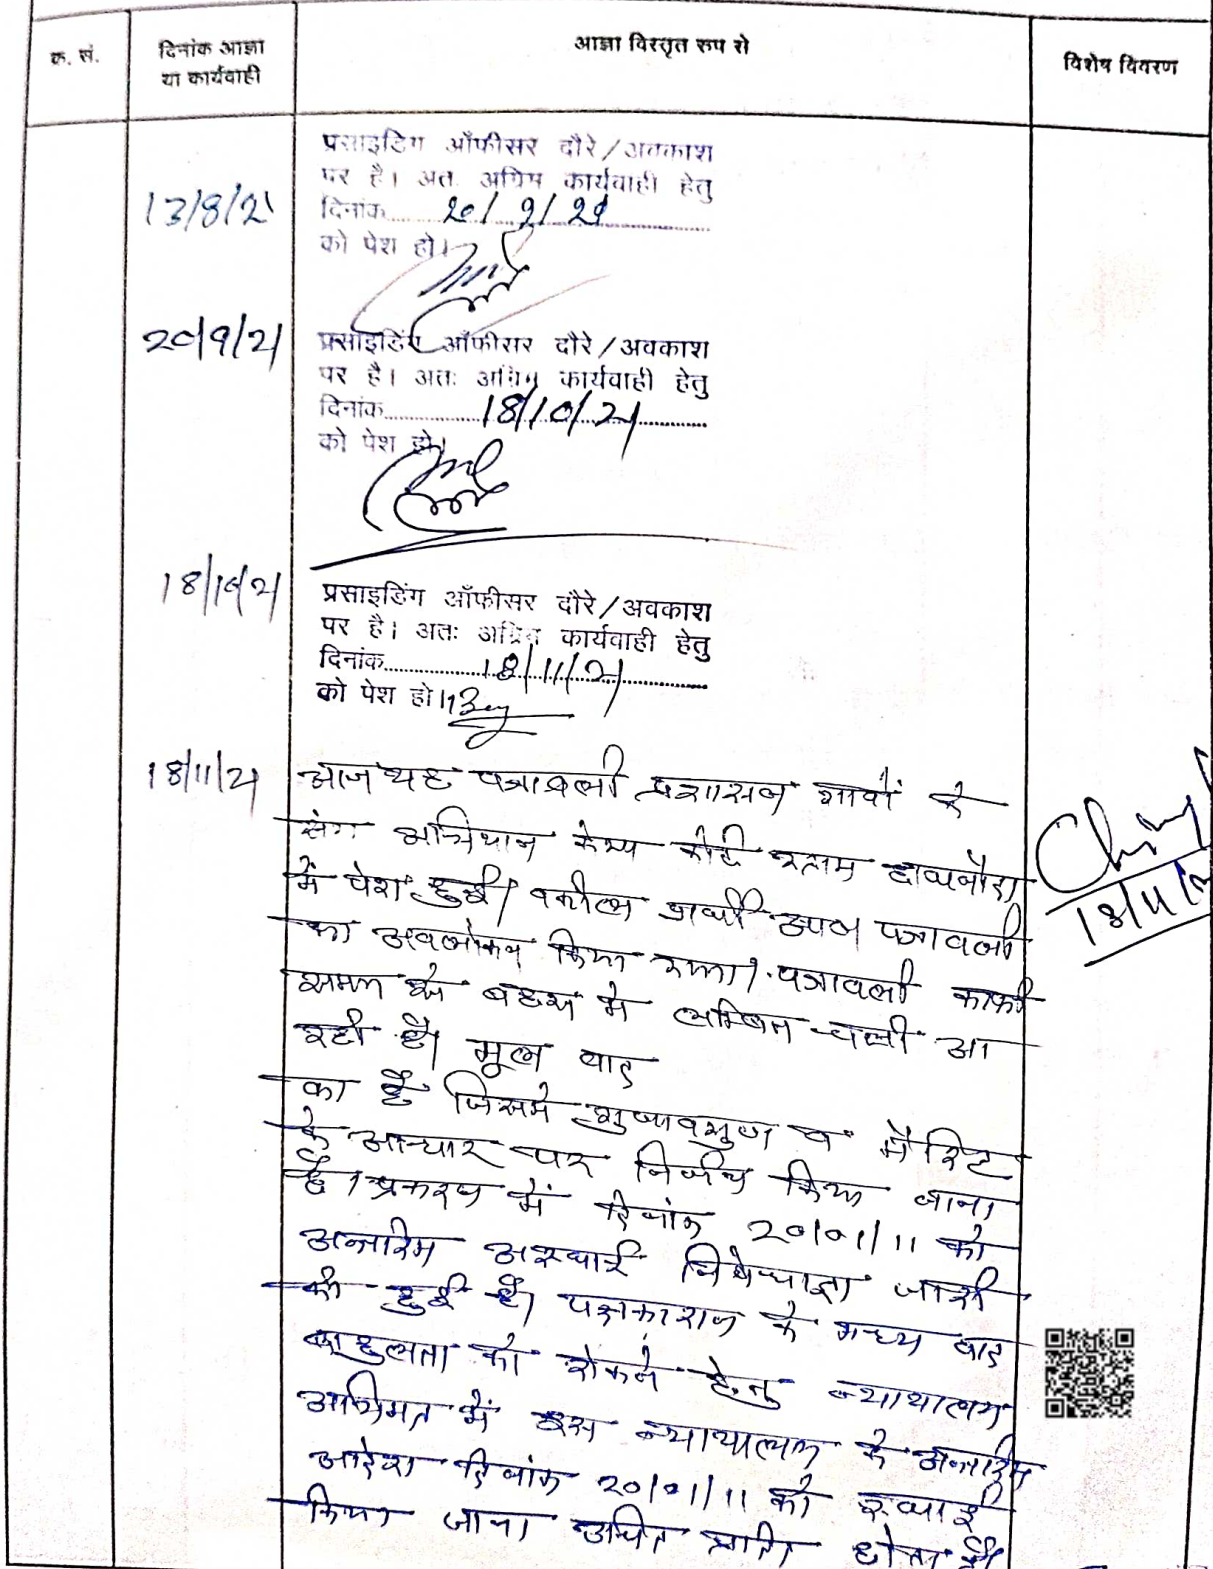 क. सं.
दिनांक आज्ञा
या कार्यवाही
आज्ञा विस्तृत रुप से
विशेष विवरण
13/8/21
प्रसाइडिंग ऑफीसर दौरे/अवकाश
पर है। अत. अग्रिम कार्यवाही हेतु
दिनांक 20/9/21
को पेश हो।
20/9/21
प्रसाइडिंग ऑफीसर दौरे/अवकाश
पर है। अतः अग्रिम कार्यवाही हेतु
दिनांक 18/10/21
को पेश हो।
18/10/21
प्रसाइडिंग ऑफीसर दौरे/अवकाश
पर है। अतः अग्रिम कार्यवाही हेतु
दिनांक 18/11/21
को पेश हो।
18/11/21
आज यह पत्रावली प्रशासन गावों के
संग अभियान केम्प कोर्ट
में पेश हुई। वकील प्रार्थी पत्रावली
का अवलोकन किया गया। पत्रावली काफी
समय से बहस में लम्बित चली आ
रही है। मूल वाद
का है जिसमे गुणावगुण व मैरिट
के आधार पर निर्णय किया जाना
है। प्रकरण में दिनांक 20/01/11 को
अन्तरिम अस्थाई निषेधाज्ञा जारी
की हुई है। पक्षकारान के मध्य वाद
बाहुलता को रोकने हेतु न्यायालय
अभिमत में इस न्यायालय के अन्तरिम
आदेश दिनांक 20/01/11 को स्थाई
किया जाना उचित प्रतीत होता है।
18/11/21